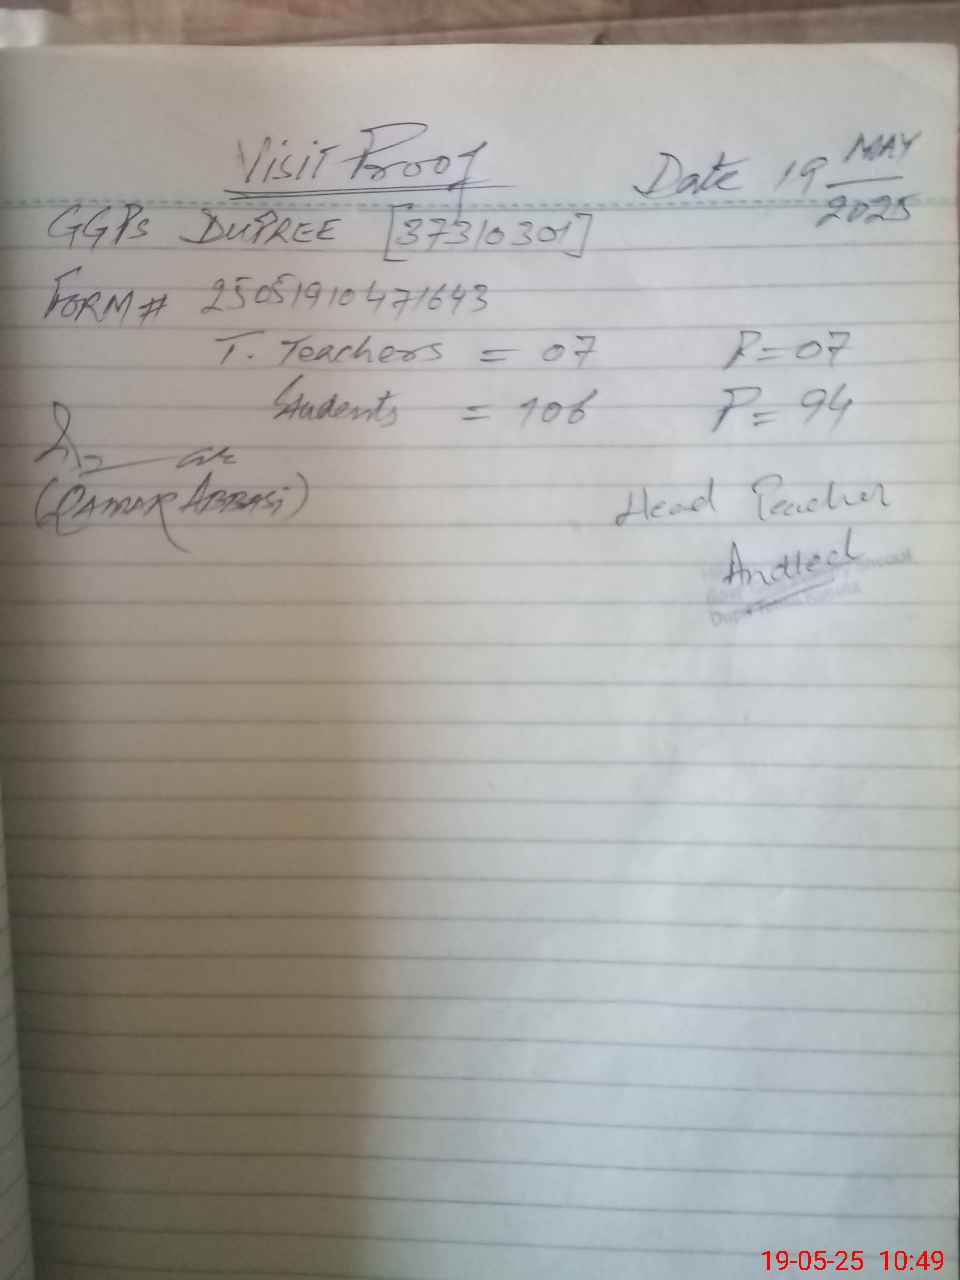 Visit Proof
Date 19 MAY
2025
GGPS DUPREE [37310301]
FORM# 25051910471643
T. Teachers = 07 P=07
Students = 106 P= 94
(QAMAR ABBASI)
Head Teacher
19-05-25 10:49